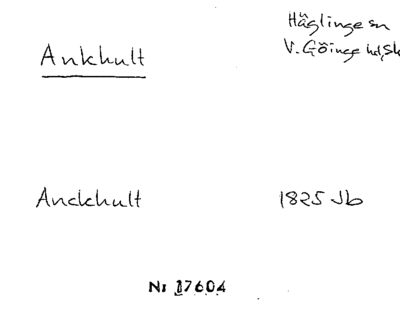 Ankhult
Häglinge sn
V. Göinge hd, Sk
Anckhult 1825 Jb
Nr 17604